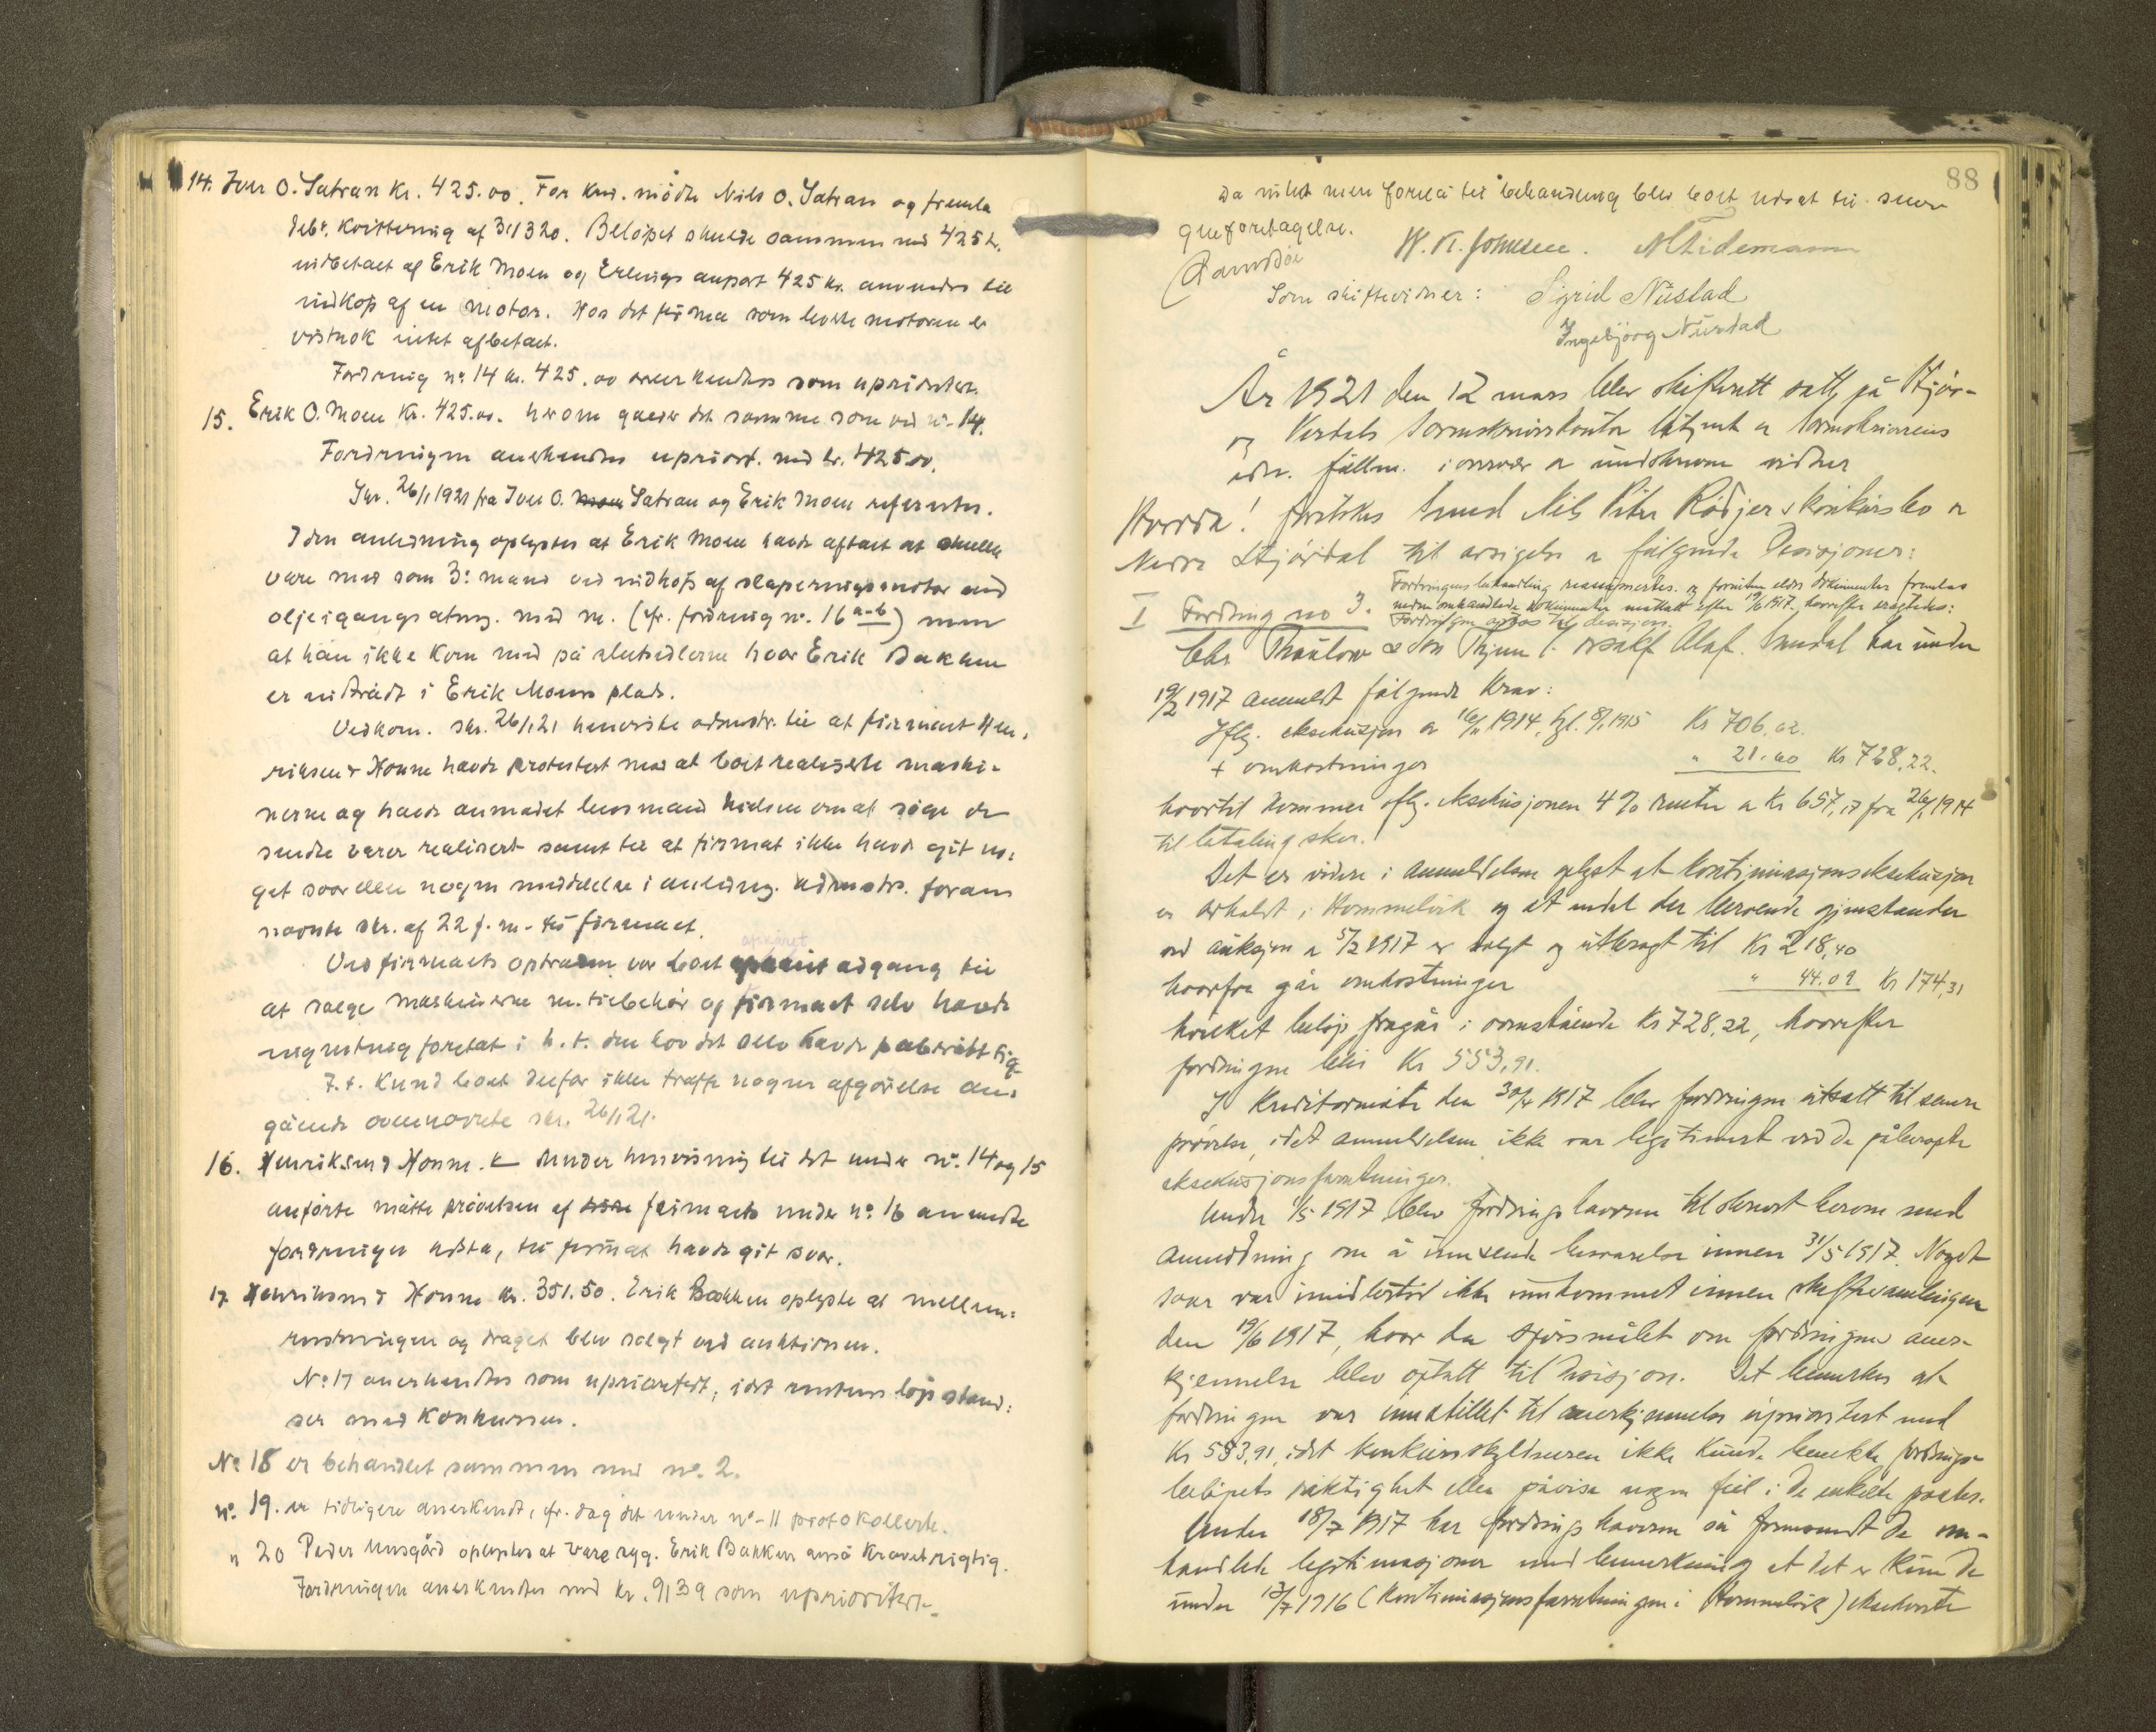 14. Iver O. Satran Kr. 425.00. For kred. mødte Nils O. Satran og fremla
deb's kvittering af 31/3 20. Beløpet skulde sammen med 425 kr.
indbetalt af Erik Moen og Erlings anpart 425 kr. anvendes til
indkøp af en motor. Hos det firma som leverte motoren er
vistnok intet afbetalt.
Fordring nº 14 kr. 425.00 anerkendtes som uprioritert.
15. Erik O. Moen Kr. 425.00. herom gjælder det samme som ved nº 14.
Fordringen anerkendtes upriort. med kr. 425.00.
Skr. 26/1 1921 fra Iver O. Satran og Erik Moen refertes.
I den anledning oplystes at Erik Moen havde aftalt at skulle
være med som 3. mand ved indkøp af motor med
oljeigangsætng. med m. (cfr. fordring nº. 16 a-b) men
at han ikke kom med på slutsedlerne hvor Erik Bakken
er indtrådt i Erik Moens plads.
Vedkom. skr. 26/1 21 henviste admstr. til at firmaet Hen-
riksen & Honne havde protestert mot at boet realiserte maski-
nerne og havde anmodet lensmand Nielsen om at søge de
sendte varer realisert samt til at firmaet ikke havde git no-
get svar eller nogen meddelelse i anledng. admstr. foran
nævnte skr. af 22 f. m. til firmaet.
Ved firmaets optræden var boet afskåret adgang til
at sælge maskinerne m. tilbehør og firmaet selv havde
ingenting foretat i h. t. den lov det selv havde påberåbt sig
F. t. kunde boet derfor ikke træffe nogen afgørelse an-
gående ovennævnte skr. 26/1 21.
16. Henriksen & Honne. Under henvisning til det under nº. 14 og 15
anførte måtte prøvelsen af firmaets under nº. 16 anmeldte
fordringer utstå, til firmaet havde git svar.
17. Henriksen & Honne kr. 351.50. Erik Bakken oplyste at mellem-
og draget blev solgt ved auktionen.
Nº 17 anerkendtes som uprioritert, idet rentens løp stand-
ser med konkursen.
Nº 18 er behandlet sammen med nº. 2.
nº. 19. er tidligere anerkendt, cfr. dog det under nº. 11 protokollerte.
" 20 Peder Husgård oplystes at være syg. Erik Bakken anså kravet rigtig.
Fordringen anerkendtes med kr. 91 39 som uprioritert.
88
Da intet mere forelå til behandling blev boet udsat til senere
gjenforetagelse.
W. N. Johnsen. N. Tidemann
Som skiftevidner: Sigrid Nustad
Ingebjørg Nustad
År 1921 den 12 mars blev skifterett satt på Stjør-
og Verdals Sorenskriverkontor betjent av Sorenskriverens
edsv. fullm. i overvær av undskrevne vidner
Hvorda! foretokes Smed Nils Peter Rådjers konkursbo av
Nedre Stjørdal til avsigelse av følgende Decisjoner:
Fordringens behandling reassumertes. og foruten eldre dokumenter fremlas
I Fordring no 3. nedenomhandlede dokumenter mottatt efter 19/6 1917. hvorefter eragtedes:
Fordringen optas til decisjon.
Chr Thaulow & Søn Thjem v. orsakf Olaf. Sundal har under
19/2 1917 anmeldt følgende krav:
Iflg. eksekusjon av 16/11 1914, tgl. 8/1 1915 Kr 706,62.
+ omkostninger " 21.60 Kr 728,22.
hvortil kommer iflg. eksekusjonen 4% renter av Kr 657,17 fra 26/11 1914
til betaling sker.
Det er videre i anmeldelsen oplyst at kontinuasjonseksekusjon
er avholdt i Hommelvik og at endel der beroende gjenstander
ved auksjon av 5/2 1917 er solgt og utbragt til Kr 218,40
hvorfra går omkostninger " 44.09 Kr 174,31
hvilket beløp fragår i ovenstående Kr 728,22, hvorefter
fordringen blir Kr 553,91.
I kreditormøte den 30/4 1917 blev fordringen utsatt til senere
prøvelse, idet anmeldelsen ikke var legitimert ved de påberopte
eksekusjonsforretninger.
Under 1/5 1917 blev fordringshaveren tilskrevet herom med
anmodning om å innsende besvarelse innen 31/5 1917. Noget
svar var imidlertid ikke innkommet innen skiftesamlingen
den 19/6 1917, hvor da spørsmålet om fordringens aner-
kjennelse blev optatt til decisjon. Det bemerkes at
fordringen var innstillet til anerkjennelse uprioritert med
Kr 553,91, idet konkursskyldneren ikke kunde benekte fordrings-
beløpets riktighet eller påvise nogen feil i de enkelte poster.
Under 18/7 1917 har fordringshaveren så fremsendt de om-
handlede legitimasjoner med bemerkning at det er kun de
under 13/7 1916 (kontinuasjonsforretningen i Hommelvik) eksekverte